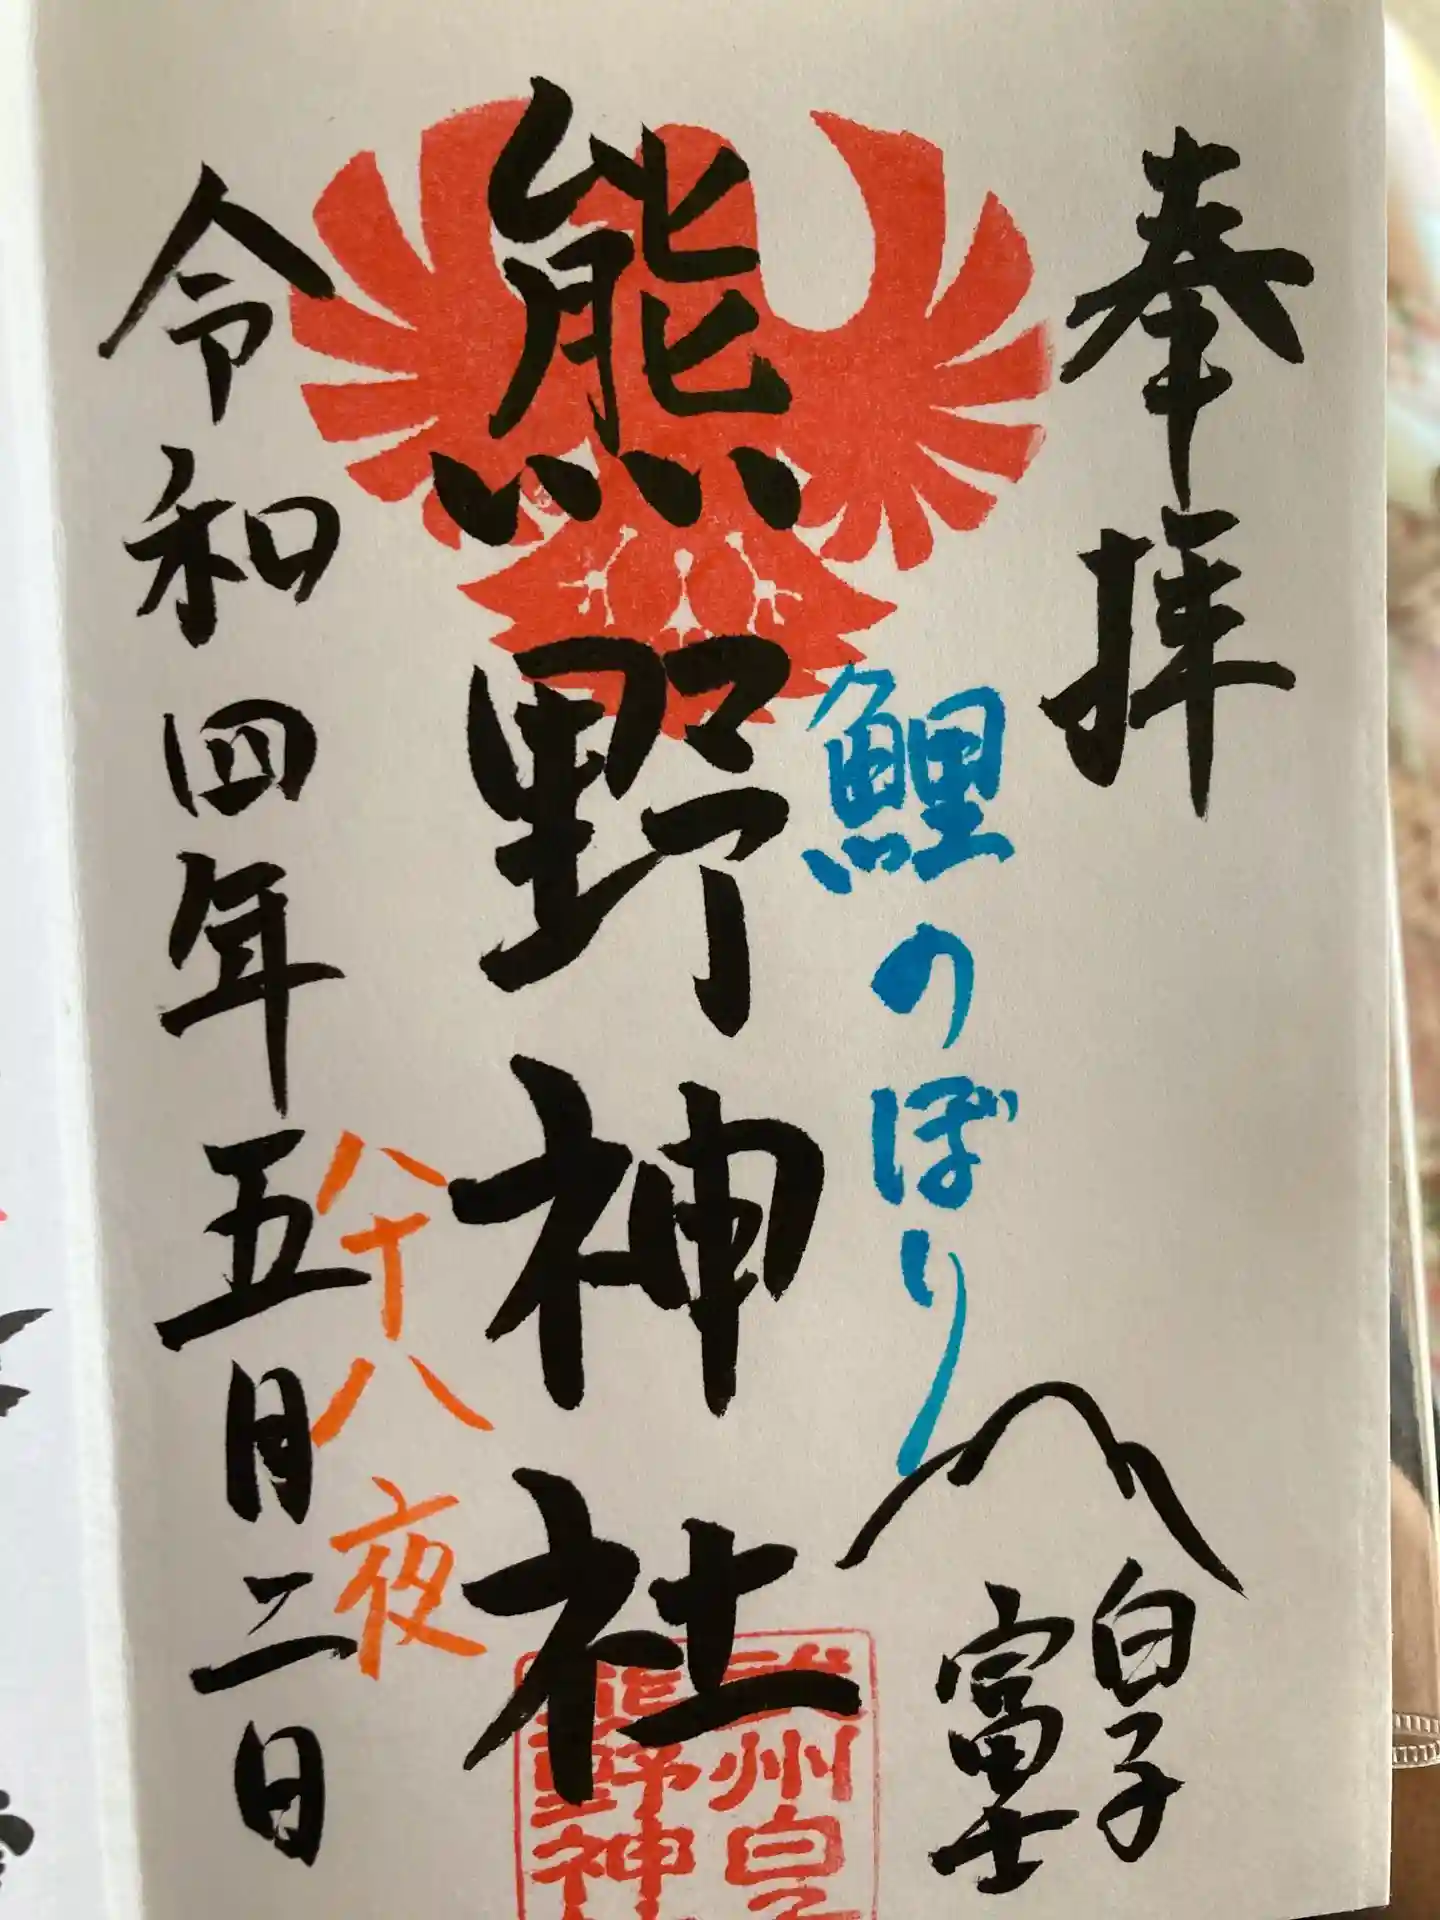 奉拝
鯉のぼり
白子
富士
熊野神社
武州白子
熊野神社
八十八夜
令和四年五月二日